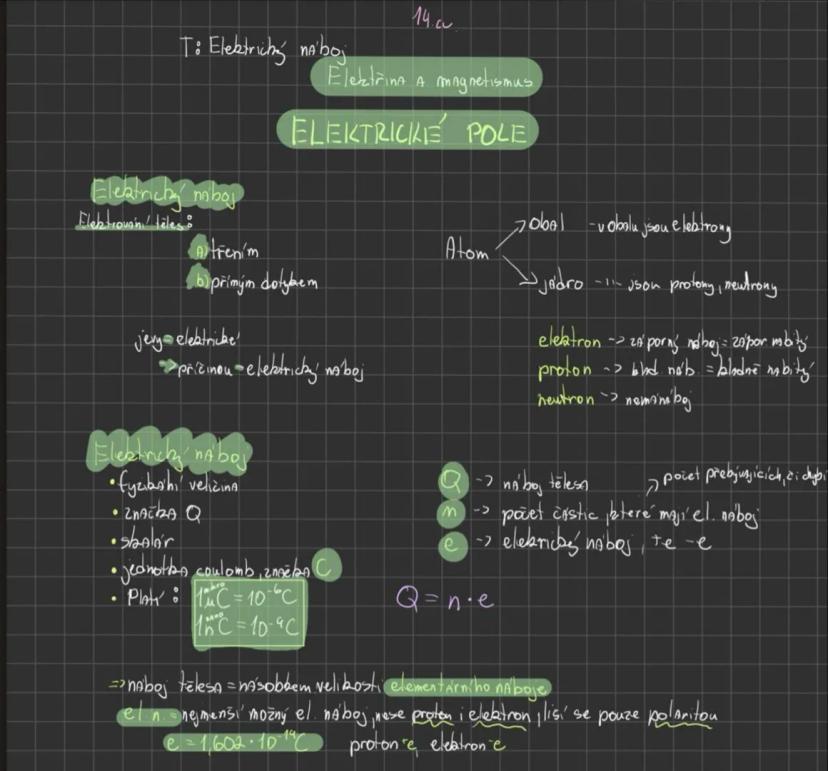 14.a
T: Elektrický náboj
Elektřina a magnetismus
ELEKTRICKÉ POLE
Elektrický náboj
Elektrování těles:
a) třením
b) přímým dotykem
jevy = elektrické
=> příčinou = elektrický náboj
Atom
obal - v obalu jsou elektrony
jádro -"- jsou protony, neutrony
elektron -> záporný náboj = zápor nabitý
proton -> klad náb. = kladně nabitý
neutron -> nemá náboj
Elektrický náboj
• fyzikální veličina
• značka Q
• skalár
• jednotka coulomb, značka C
• Platí:
mikro
1μC = 10⁻⁶C
nano
1nC = 10⁻⁹C
Q -> náboj tělesa
počet přebývajících, či chybí
n -> počet částic, které mají el. náboj
e -> elektrický náboj, +e -e
Q = n · e
=> náboj tělesa = násobkem velikosti elementárního náboje
el. n. = nejmenší možný el. náboj, nese proton i elektron, liší se pouze polaritou
e = 1,602 · 10⁻¹⁹C proton +e, elektron -e